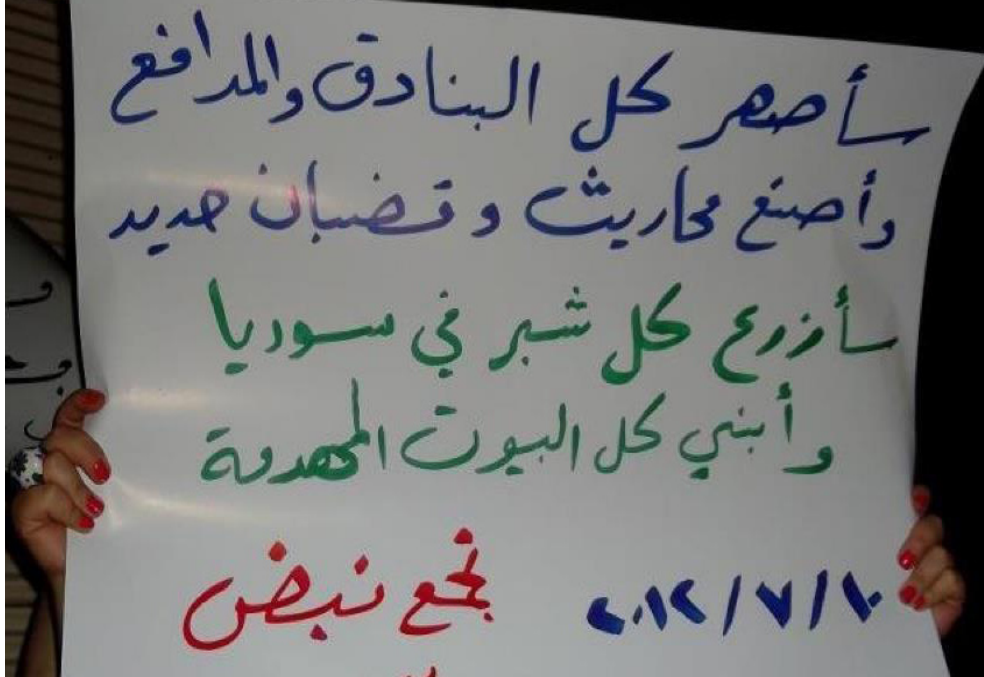 سأصهر كل البنادق والمدافع
وأصنع محاريث وقضبان حديد
سأزرع كل شبر في سوريا
وأبني كل البيوت المهدمة
٢٠١٢/٧/١٠ تجمع نبض